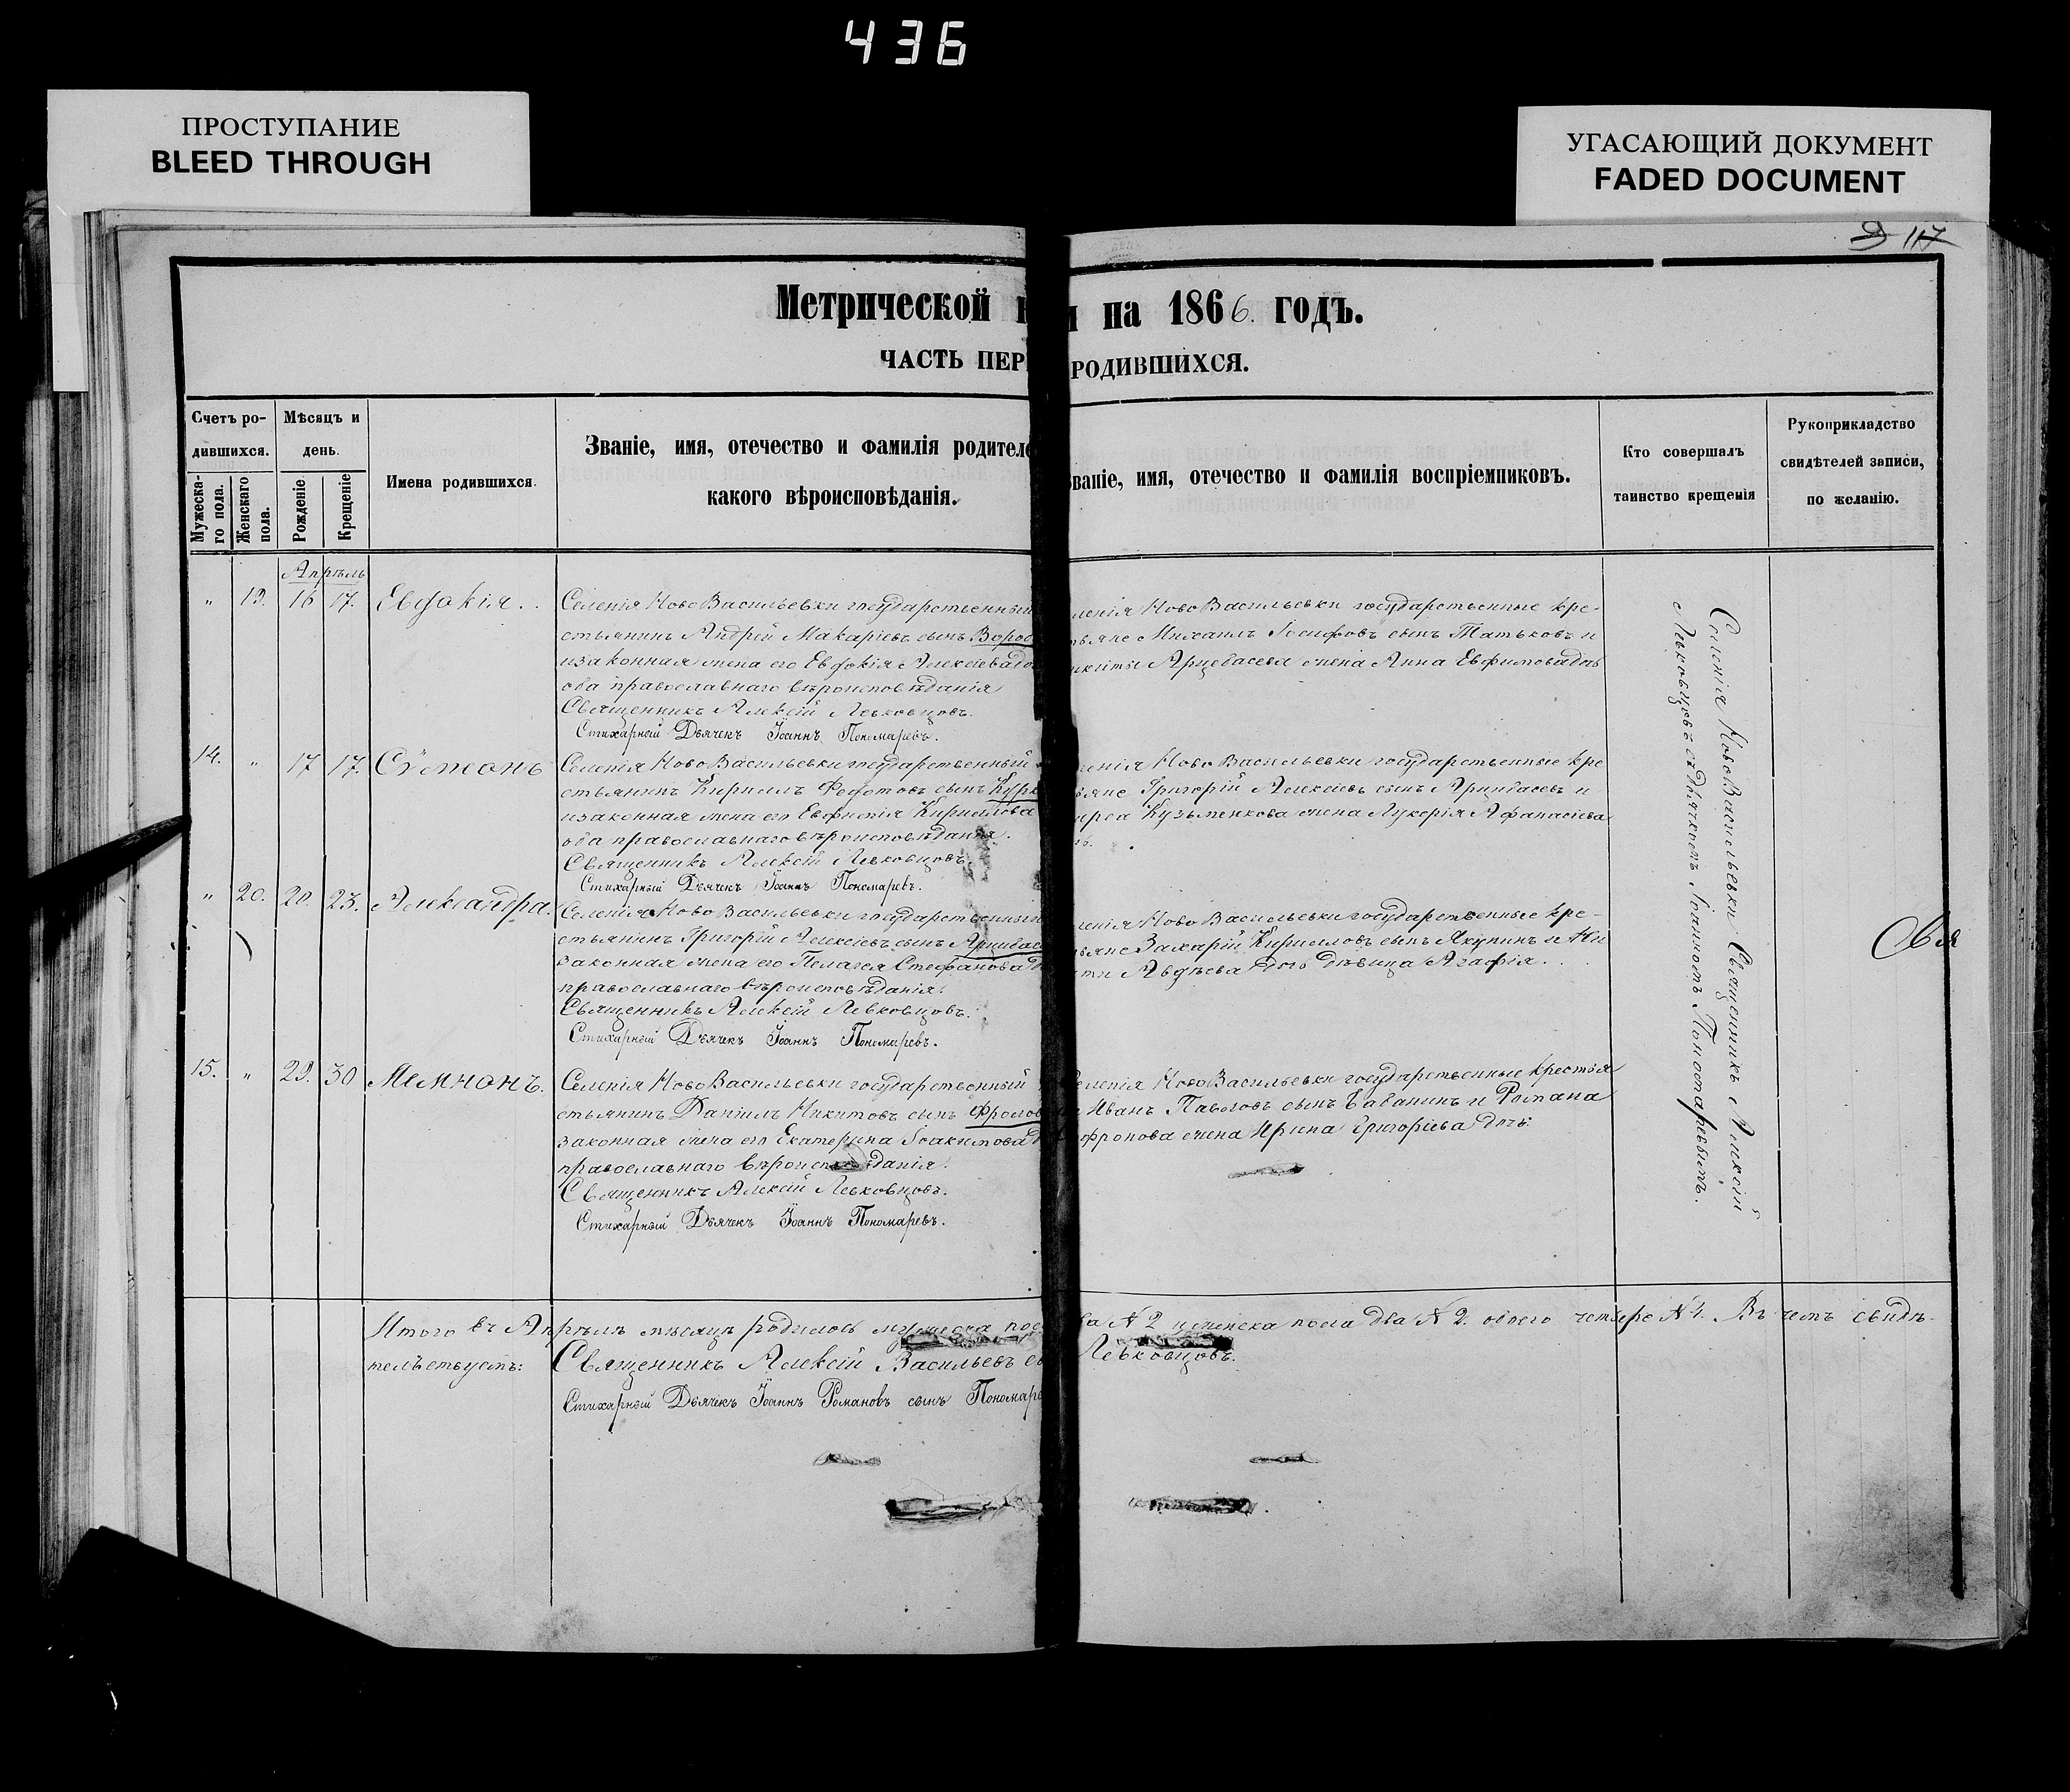 436
ПРОСТУПАНИЕ
BLEED THROUGH
УГАСАЮЩИЙ ДОКУМЕНТ
FADED DOCUMENT
117
Метрической на 1866. годъ.
ЧАСТЬ ПЕР РОДИВШИХСЯ.
Счетъ ро-
дившихся.
Мужеска-
го пола.
Женскаго
пола.
Мѣсяцъ и
день.
Рожденіе.
Крещеніе
Имена родившихся.
Званіе, имя, отечество и фамилія родителе
какого вѣроисповѣданія.
званіе, имя, отечество и фамилія воспріемниковъ.
Кто совершалъ
таинство крещенія
Рукоприкладство
свидѣтелей записи,
по желанію.
Апрѣль
„ 19. 16 17. Евдокія..
Селенія НовоВасильевки государственный
стьянинъ Андрей Макаріевъ сынъ Ворос
изаконная жена его Евдокія Алексіева до
ова православнаго вѣроисповѣданія
Священникъ Алексій Левковцовъ.
Стихарный Дьячекъ Іоаннъ Пономаревъ.
ленія НовоВасильевки государственные кре-
тьяне Михаилъ Іосифовъ сынъ Татьковъ и
икиты Арцебасева жена Анна Евфимова дочь
14. „ 17 17. Сѵмеонъ
Селенія НовоВасильевки государственный
стьянинъ Кириллъ Федотовъ сынъ Курк
изаконная жена его Евфимія Кириллова
ова православнаго вѣроисповѣданія.
Священникъ Алексій Левковцовъ.
Стихарный Дьячекъ Іоаннъ Пономаревъ.
ленія НовоВасильевки государственные кре
ьяне Григорій Алексіевъ сынъ Арцибасевъ и
Кузьменкова жена Лукерія Афанасіева
„ 20. 20. 23. Александра.
Селенія НовоВасильевки государственный
стьянинъ Григорій Алексіевъ сынъ Арцибас
законная жена его Пелагея Стефанова д
православнаго вѣроисповѣданія.
Священникъ Алексій Левковцовъ.
Стихарный Дьячекъ Іоаннъ Пономаревъ.
ленія НовоВасильевки государственные кре-
ьяне Захарій Кирилловъ сынъ Якунинъ и Ни
ты Авдѣева дочь дѣвица Агафія.
15. „ 29. 30 Мемнонъ.
Селенія НовоВасильевки государственный
стьянинъ Даніилъ Никитовъ сынъ Фролов
законная жена его Екатерина Іоакимова д
православнаго вѣроисповѣданія.
Священникъ Алексій Левковцовъ.
Стихарный Дьячекъ Іоаннъ Пономаревъ.
еленія НовоВасильевки государственные крестья
Иванъ Павловъ сынъ Баванинъ и Романа
офронова жена Ирина Григоріева дочь.
Селенія НовоВасильевки Священникъ Алексій
Левковцовъ съ Дьячкомъ Іоанномъ Пономаревымъ.
Свя
Итого въ Апрѣлѣ мѣсяцѣ родилось мужеска пол ва № 2 и женска пола два № 2. обоего четверо № 4. Въ чемъ свидѣ-
тельствуютъ: Священникъ Алексій Васильевъ Левковцовъ.
Стихарный Дьячекъ Іоаннъ Романовъ сынъ Пономаре